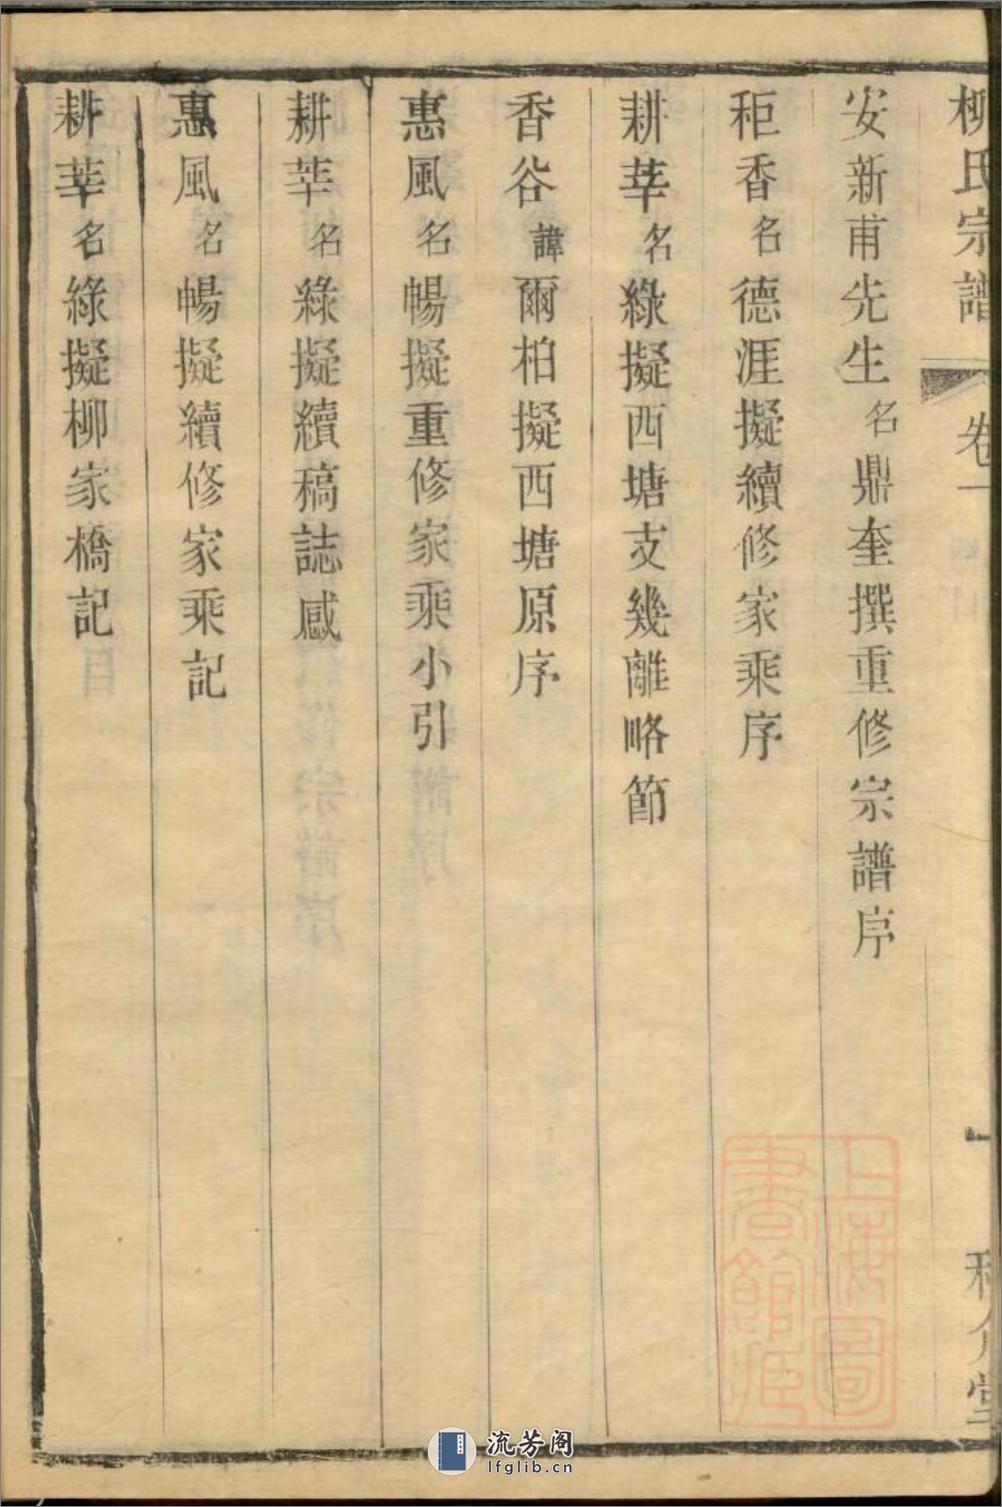 柳氏宗譜 卷一 一 和介堂
安新甫先生名鼎奎撰重修宗譜序
秬香名德涯擬續修家乘序
耕莘名綠擬西塘支幾離略節
香谷諱爾柏擬西塘原序
惠風名暢擬重修家乘小引
耕莘名綠擬續稿誌感
惠風名暢擬續修家乘記
耕莘名綠擬柳家橋記
上海圖書館藏
流芳阁
lfglib.cn